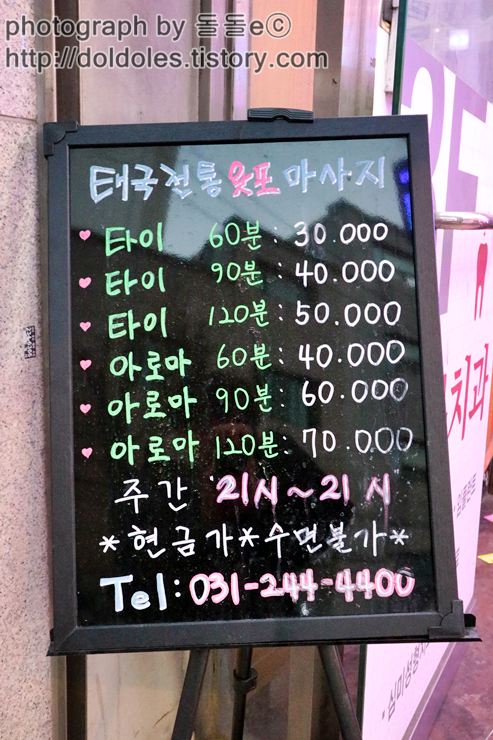 photograph by 돌돌e©
http://doldoles.tistory.com
태국전통 왓포 마사지
♥ 타이 60분: 30.000
♥ 타이 90분: 40.000
♥ 타이 120분: 50.000
♥ 아로마 60분: 40.000
♥ 아로마 90분: 60.000
♥ 아로마 120분: 70.000
주간 21시~21시
*현금가*수면불가*
Tel: 031-244-4400
치과
임플란트
·심미성형치